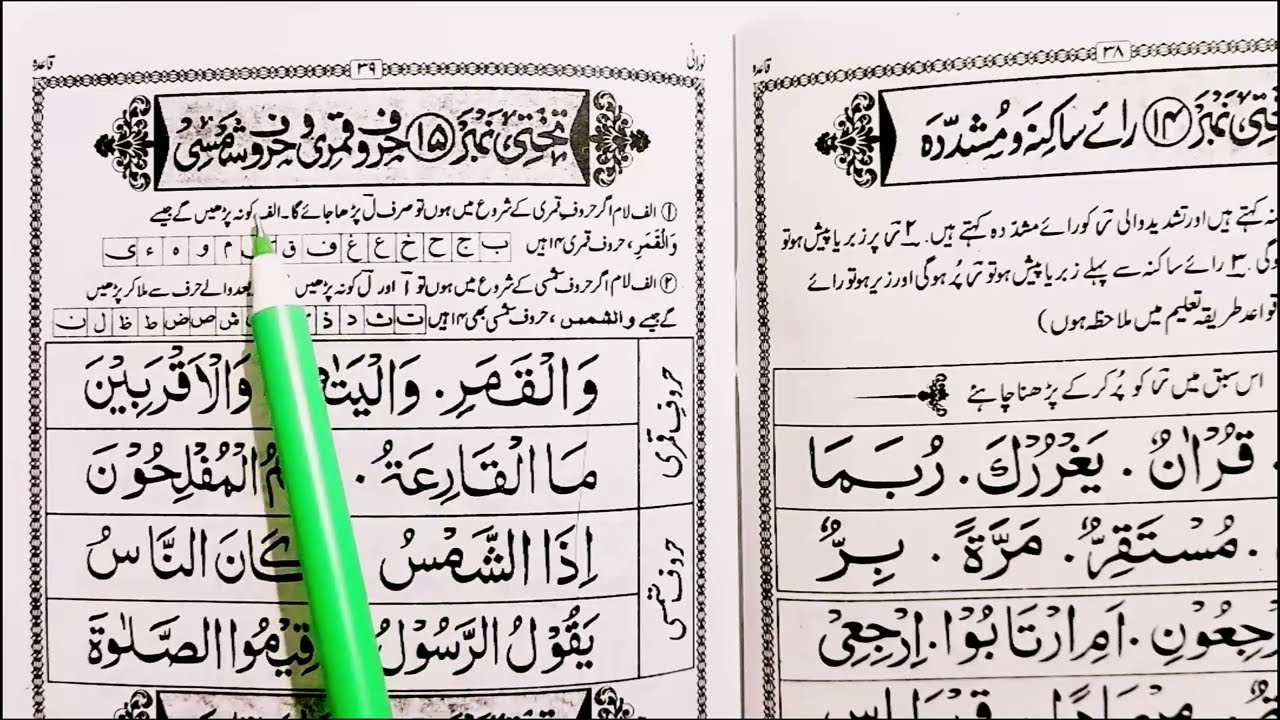 قاعدہ
۳۸
تختی نمبر ۱۴ رائے ساکنہ و مشددہ
نہ کہتے ہیں اور تشدید والی ر کو رائے مشددہ کہتے ہیں۔ ۲ ر پر زبر یا پیش ہو تو
ہوگی۔ ۳ رائے ساکنہ سے پہلے زبر یا پیش ہو تو ر پُر ہوگی اور زیر ہو تو رائے
قواعد طریقہ تعلیم میں ملاحظہ ہوں)
اس سبق میں ر کو پُر کر کے پڑھنا چاہئے
قُرْاٰنٌ . يَغْرُرْكَ . رُبَمَا
. مُسْتَقِرٌّ . مَرَّةً . بِرٌّ
اَمِ ارْتَابُوْا . اِرْجِعِيْ
نورانی
۳۹
قاعدہ
تختی نمبر ۱۵ حروف قمری و حروف شمسی
① الف لام اگر حروف قمری کے شروع میں ہوں تو صرف لْ پڑھا جائے گا۔ الف کو نہ پڑھیں گے جیسے
وَالْقَمَرِ ، حروف قمری ۱۴ ہیں ب ج ح خ ع غ ف ق م و ہ ء ی
② الف لام اگر حروف شمسی کے شروع میں ہوں تو آ اور لْ کو نہ پڑھیں بعد والے حرف سے ملا کر پڑھیں
گے جیسے والشمس ، حروف شمسی بھی ۱۴ ہیں ت ث د ذ ش ص ض ط ظ ل ن
حروف قمری
وَالْقَمَرِ . وَالْيَتٰ وَالْاَقْرَبِيْنَ
مَا الْقَارِعَةُ . مُ الْمُفْلِحُوْنَ
حروف شمسی
اِذَا الشَّمْسُ كَانَ النَّاسُ
يَقُوْلُ الرَّسُوْلُ قِيْمُوا الصَّلٰوةَ